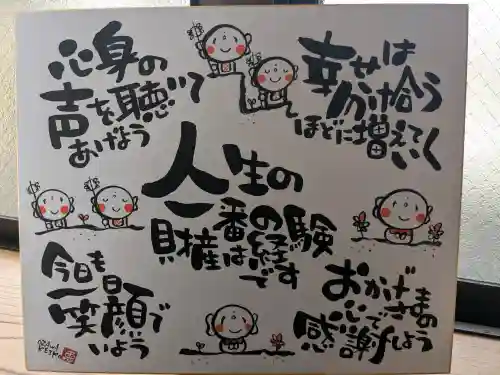 心身の
声を聴いて
あげよう
幸せは
分け合う
ほどに増えて
いく
人生の
一番の
財産は経験
です
今日も
一日
笑顔で
いよう
おかげさまの
心で
感謝しよう